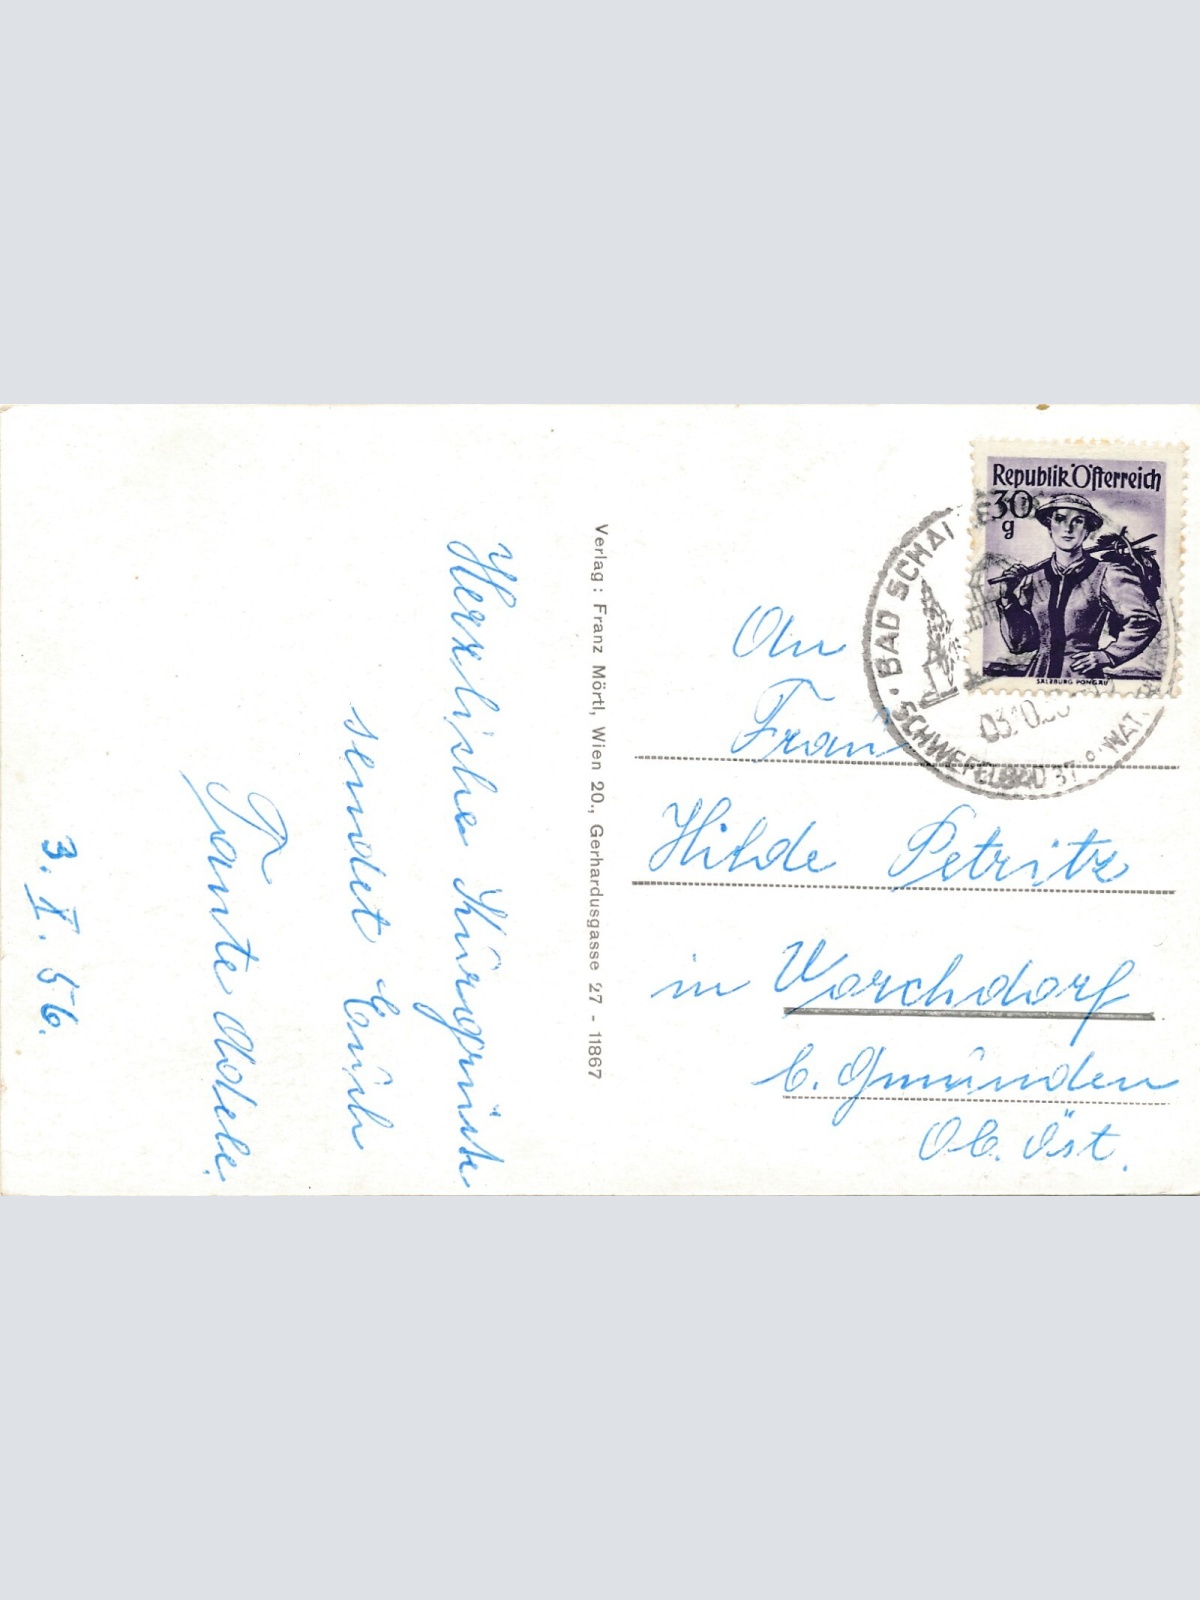 Herzliche Kurgrüße
sendet Euch
Tante Adele.
3. X. 56.
Verlag : Franz Mörtl, Wien 20., Gerhardusgasse 27 - 11867
Republik Österreich
30
g
SALZBURG PONGAU
BAD SCHAL
SCHWEFELBAD 37° WAT.
03.10.
An
Frau
Hilde Petritz
in Vorchdorf
b. Gmünden
Ob. Öst.